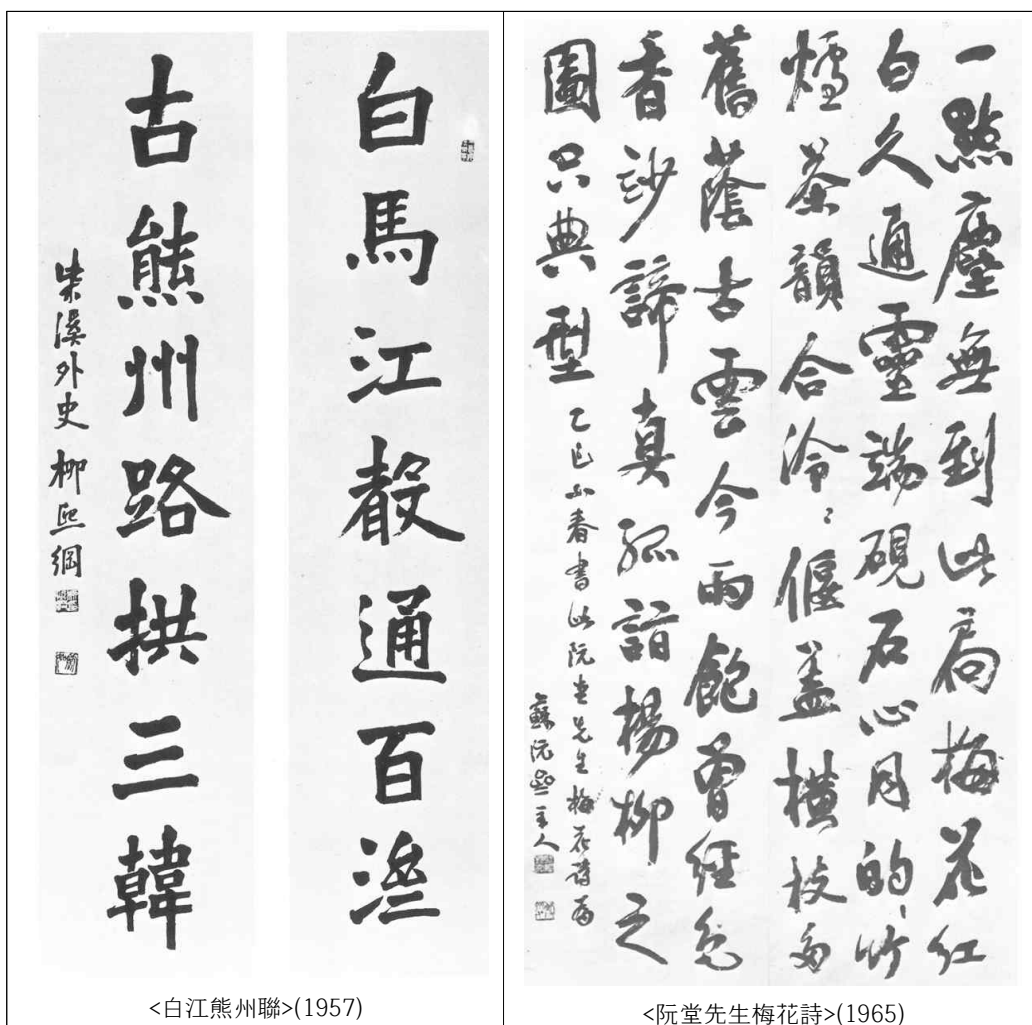 白馬江聲通百濟
古熊州路拱三韓
柴溪外史 柳熙綱
<白江熊州聯>(1957)
一點塵無到此扃梅花紅
白久通靈端硯石心月的〻竹
爐茶韻合泠〻偃蓋橫枝多
舊蔭古雲今雨飽曾經兜
香妙諦真孤詣楊柳之
圖只典型 乙巳小春書此阮堂先生梅花詩為
蘇阮齋主人
<阮堂先生梅花詩>(1965)